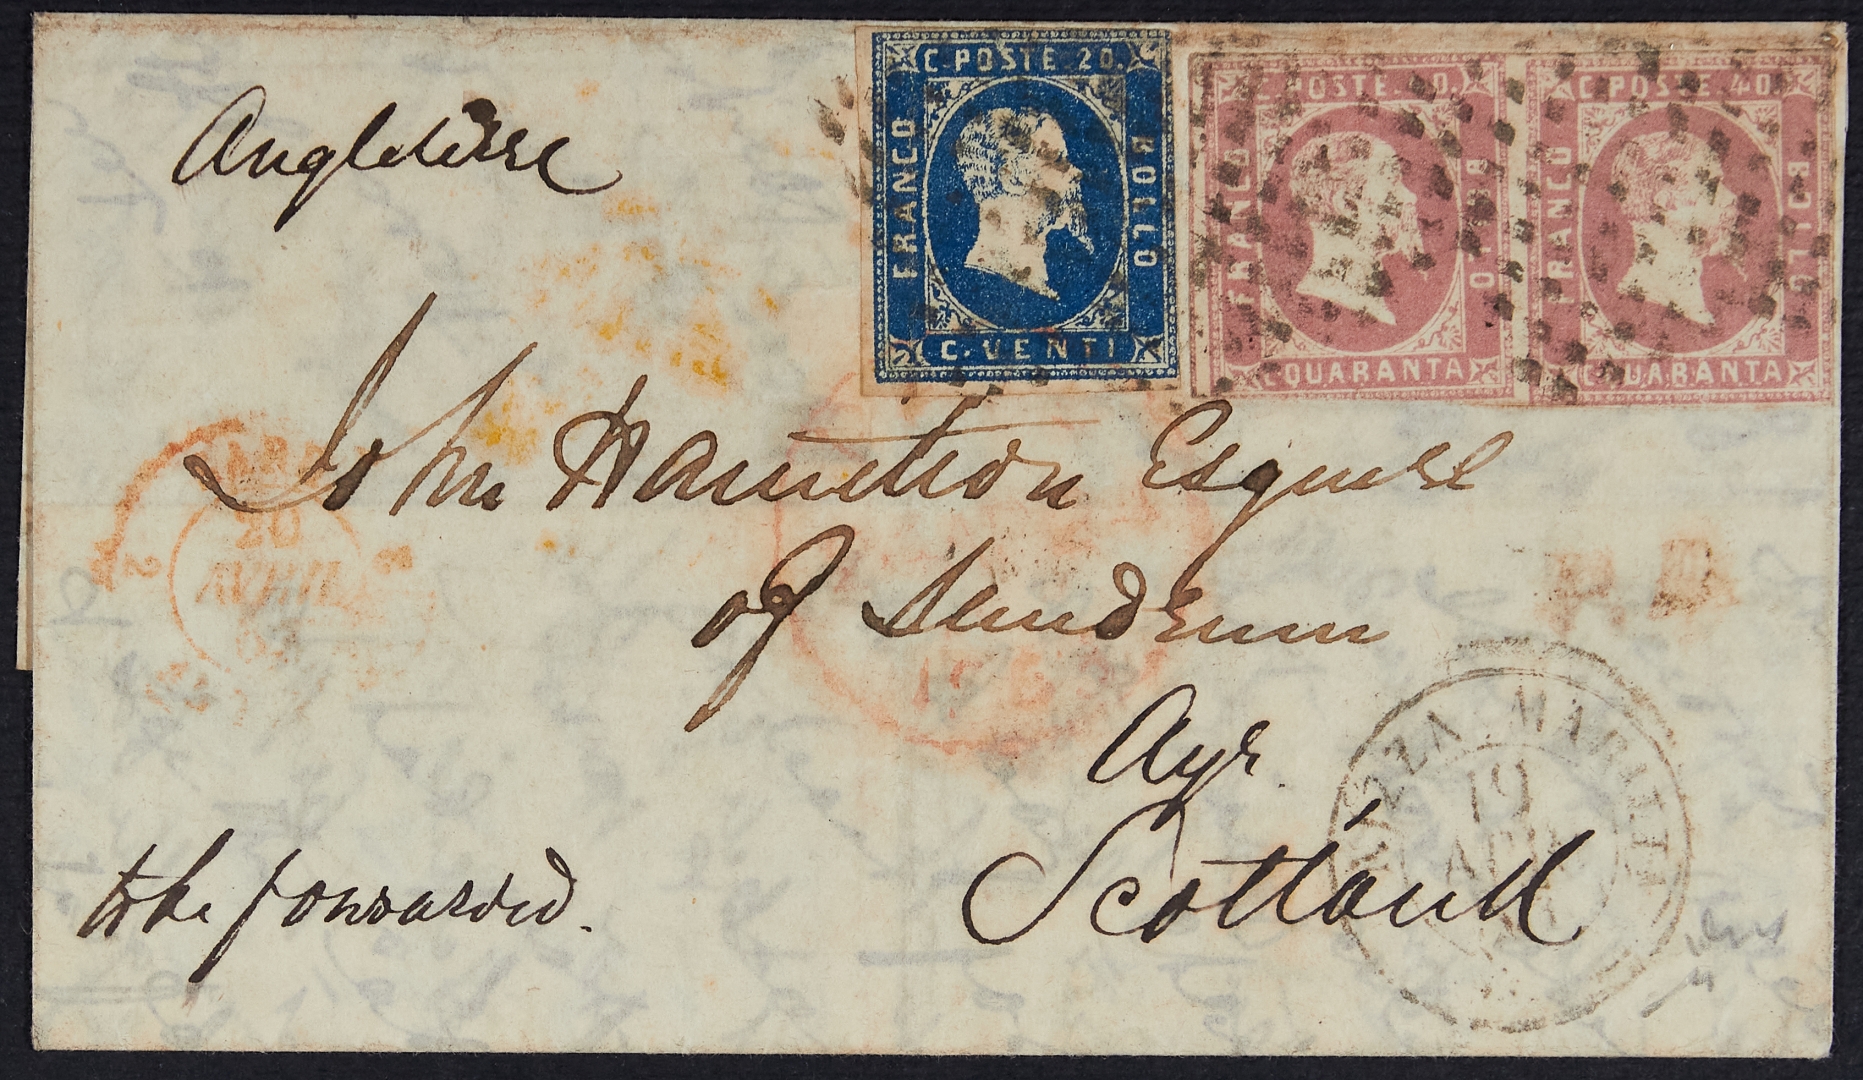 C. POSTE. 20.
FRANCO
BOLLO
C. VENTI
C. POSTE. 40.
FRANCO
BOLLO
C. QUARANTA
C. POSTE. 40.
FRANCO
BOLLO
C. QUARANTA
Angleterre
John Hamilton Esquire
of Sundrum
Ayr
Scotland
to be forwarded.
20
AVRIL
P. D.
NIZZA MARITT
19
APR